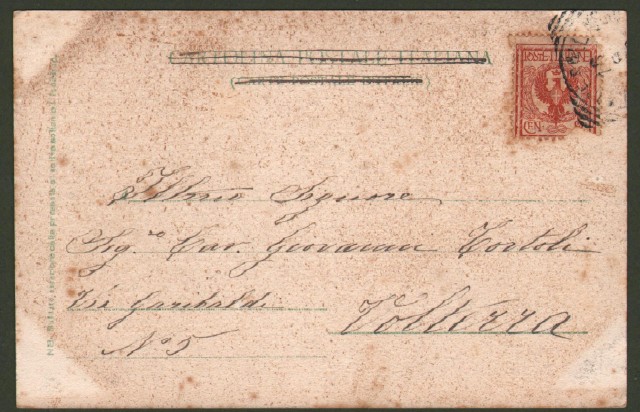 CARTOLINA POSTALE ITALIANA
POSTE ITALIANE
CEN.
Illmo Signore
Sig.re Cav. Giovanni Tortoli
Via Garibaldi
No 5
Volterra